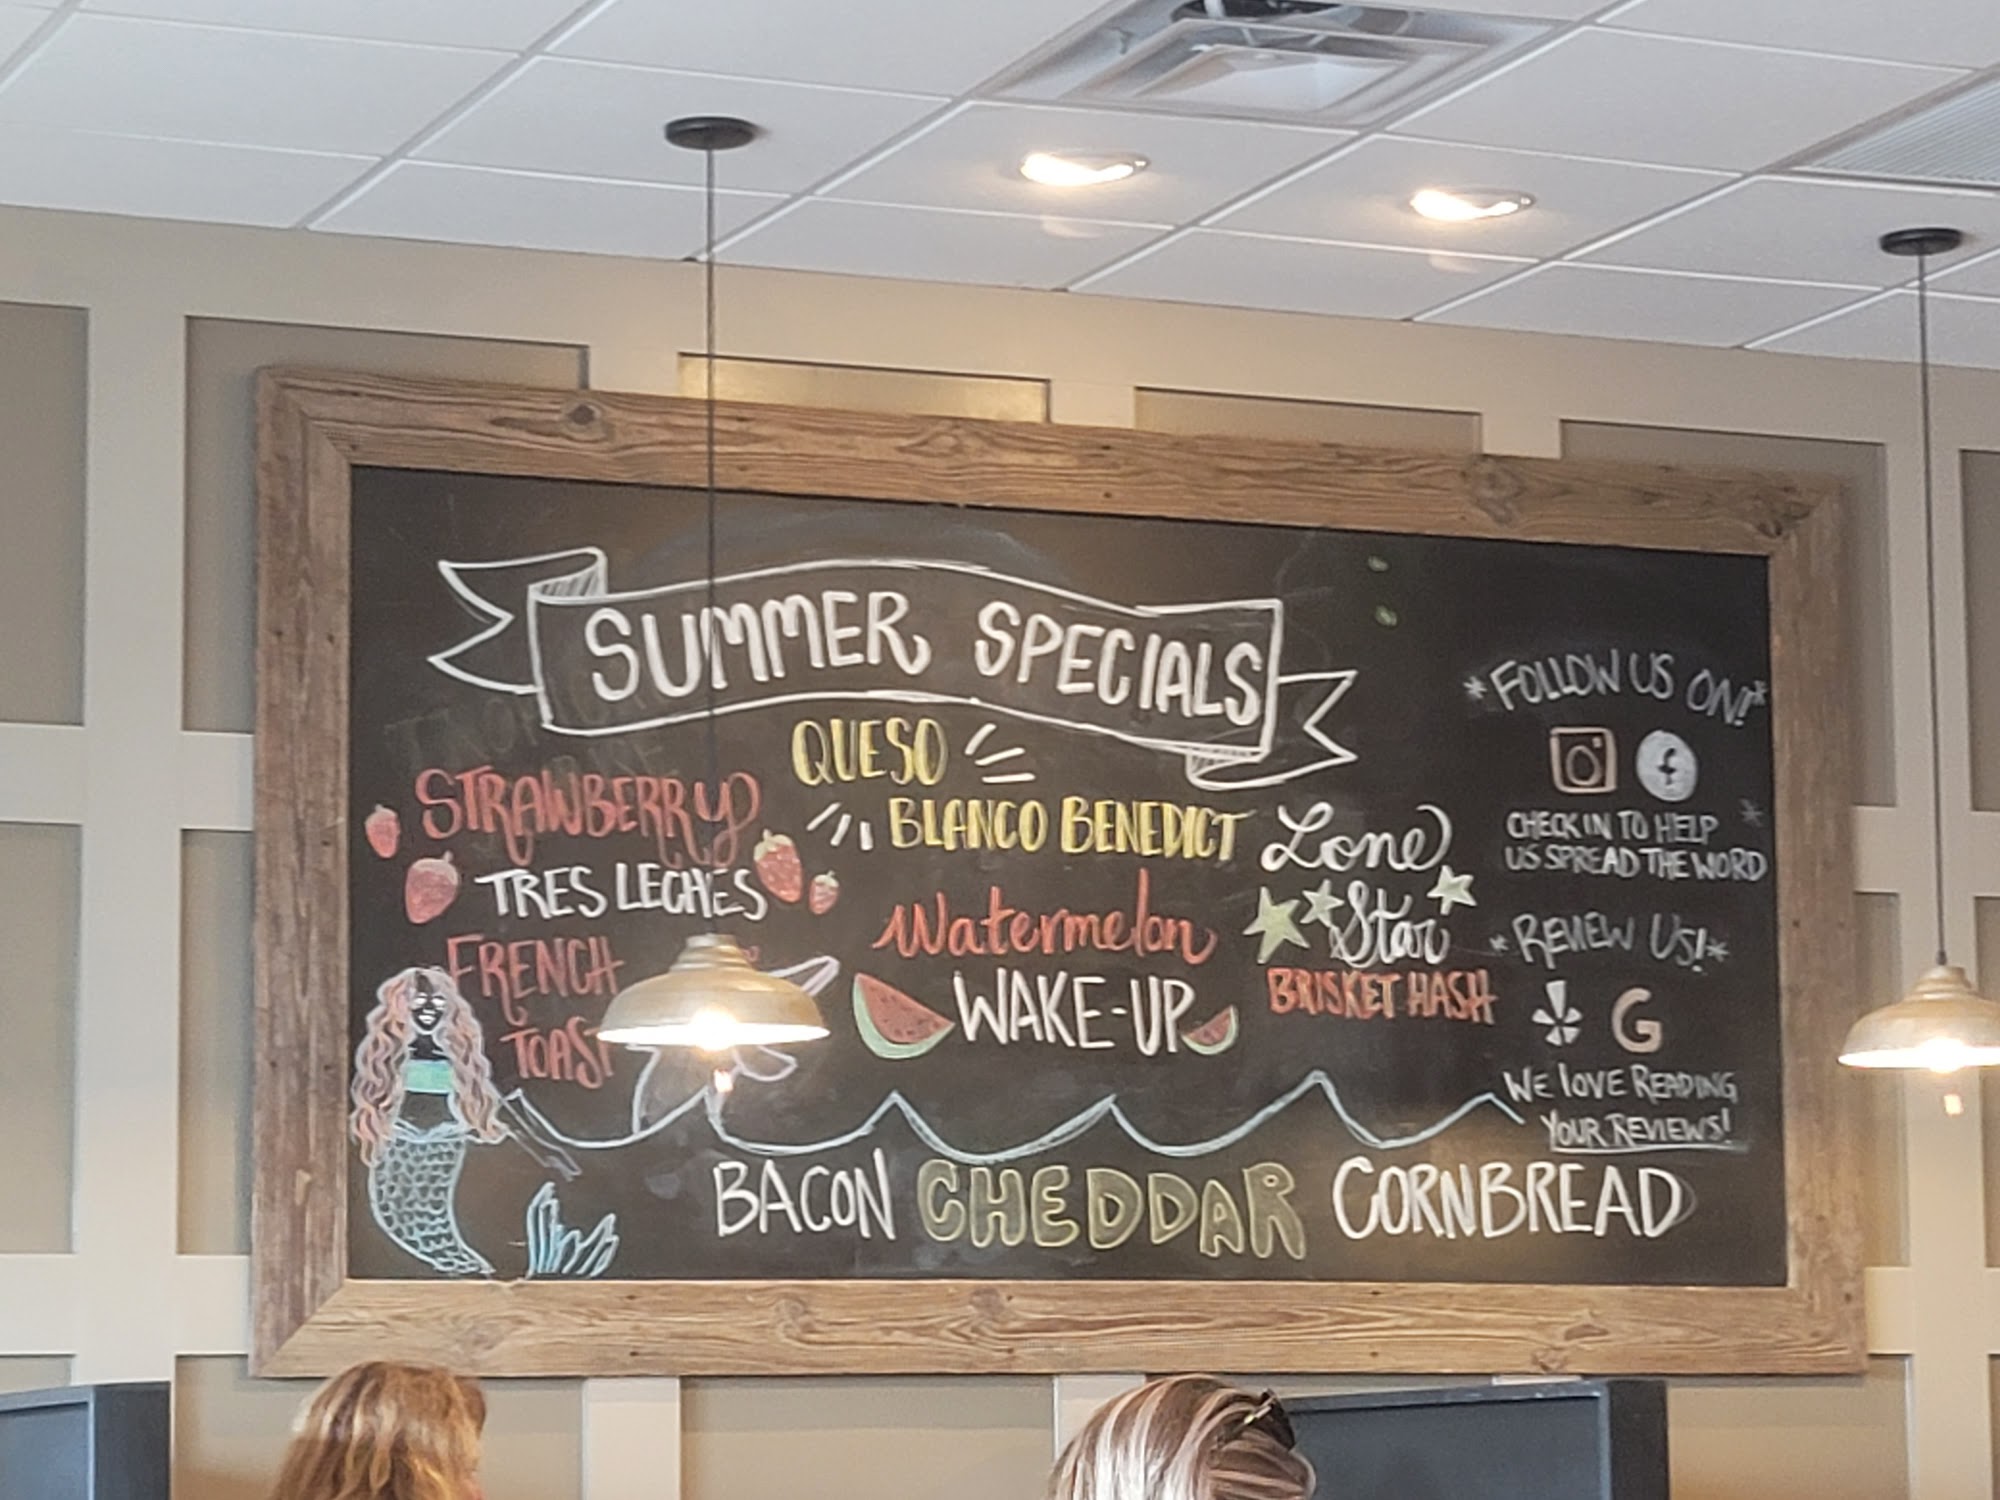 SUMMER SPECIALS
STRAWBERRY
TRES LECHES
FRENCH
TOAST
QUESO
BLANCO BENEDICT
Watermelon
WAKE-UP
Lone
Star
BRISKET HASH
BACON CHEDDAR CORNBREAD
*FOLLOW US ON!*
CHECK IN TO HELP
US SPREAD THE WORD
*REVIEW US!*
G
WE LOVE READING
YOUR REVIEWS!